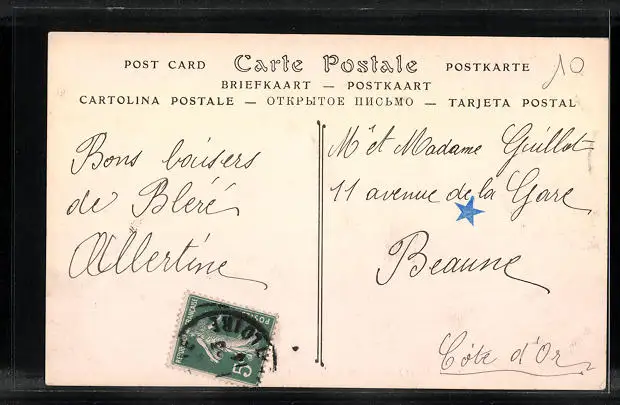 POST CARD Carte Postale POSTKARTE
BRIEFKAART — POSTKAART
CARTOLINA POSTALE — ОТКРЫТОЕ ПИСЬМО — TARJETA POSTAL
10
Bons baisers
de Bléré
Albertine
Mr et Madame Guillot
11 avenue de la Gare
Beaune
Côte d'Or
5
LOIRE